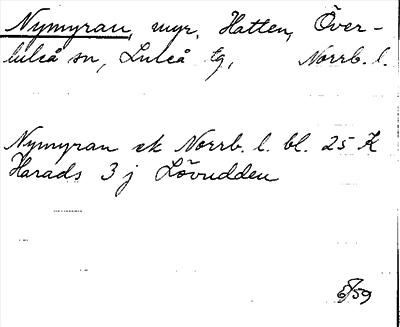 Nymyran, myr, Hatten, Över-
luleå sn, Luleå tg, Norrb. l.
Nymyran ek Norrb. l. bl. 25 K
Harads 3 j Lövudden
5/59